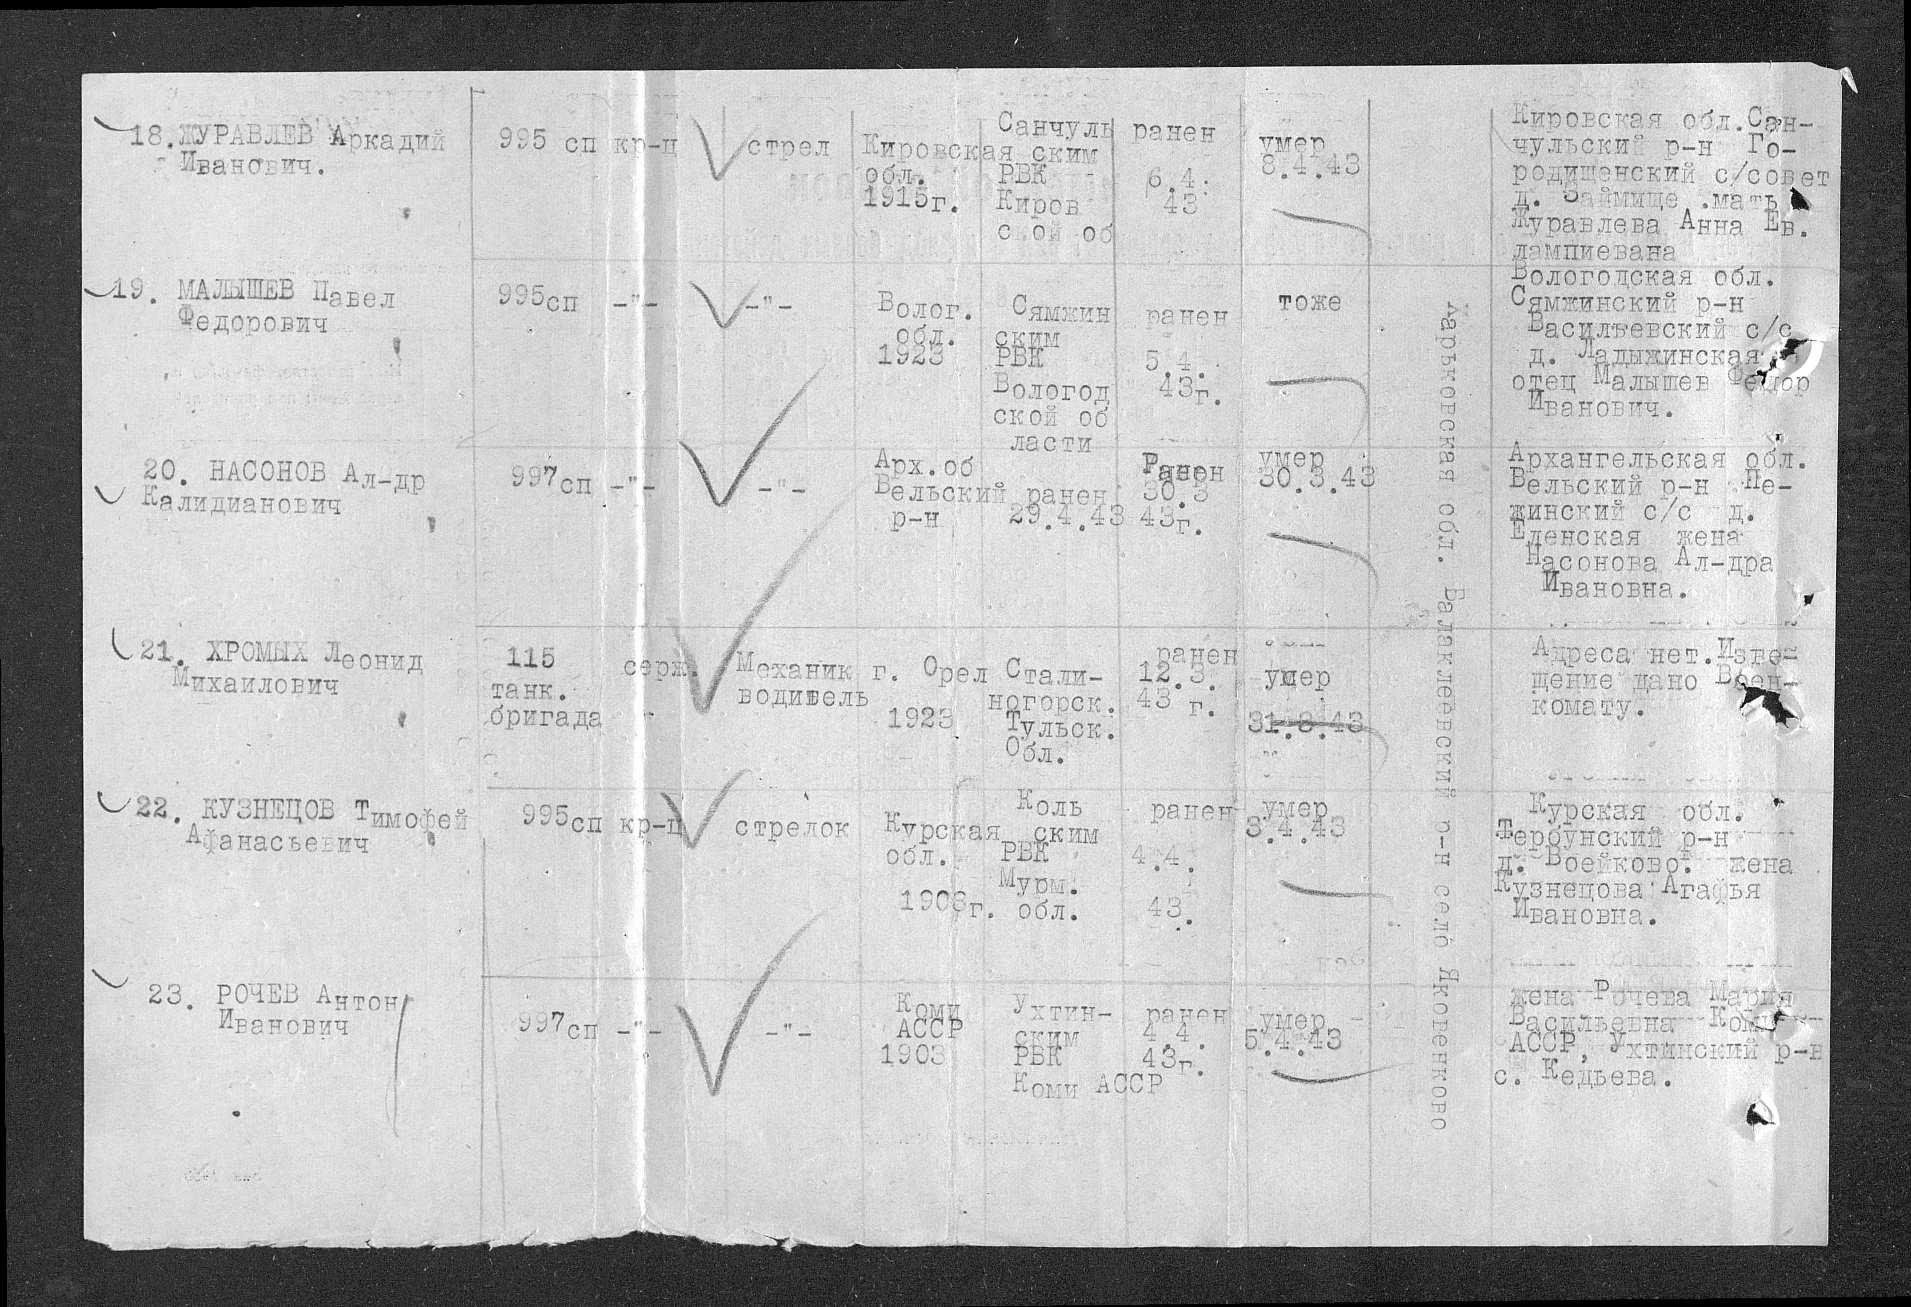 18. ЖУРАВЛЕВ Аркадий
Иванович.
995 сп кр-ц
стрел
Кировская
обл.
1915г.
Санчуль
ским
РВК
Киров
ской об
ранен
6.4.
43
умер
8.4.43
Кировская обл. Сан-
чульский р-н Го-
родищенский с/совет
д. Займище .мать
Журавлева Анна Ев.
лампиевана
19. МАЛЫШЕВ Павел
Федорович
995сп -"-
-"-
Волог.
обл.
1923
Сямжин
ским
РВК
Вологод
ской об
ласти
ранен
5.4.
43г.
тоже
Вологодская обл.
Сямжинский р-н
Васильевский с/с
д. Ладыжинская
отец Малышев Федор
Иванович.
20. НАСОНОВ Ал-др
Калидианович
997сп -"-
-"-
Арх.об
Вельский
р-н
ранен
29.4.43
Ранен
30.3
43г.
умер
30.3.43
Архангельская обл.
Вельский р-н Пе-
жинский с/с д.
Еленская жена
Насонова Ал-дра
Ивановна.
21. ХРОМЫХ Леонид
Михаилович
115
танк.
бригада
серж.
Механик
водитель
г. Орел
1923
Стали-
ногорск.
Тульск.
Обл.
ранен
12.3.
43 г.
умер
31.3.43
Адреса нет. Изве-
щение дано Воен-
комату.
22. КУЗНЕЦОВ Тимофей
Афанасьевич
995сп кр-ц
стрелок
Курская
обл.
1908г.
Коль
ским
РВК
Мурм.
обл.
ранен
4.4.
43.
умер
3.4.43
Курская обл.
Тербунский р-н
д. Воейково. жена
Кузнецова Агафья
Ивановна.
23. РОЧЕВ Антон
Иванович
997сп -"-
-"-
Коми
АССР
1903
Ухтин-
ским
РВК
Коми АССР
ранен
4.4.
43г.
умер
5.4.43
жена Рочева Мария
Васильевна Коми
АССР, Ухтинский р-н
с. Кедьева.
Харьковская обл. Балаклеевский р-н село Яковенково